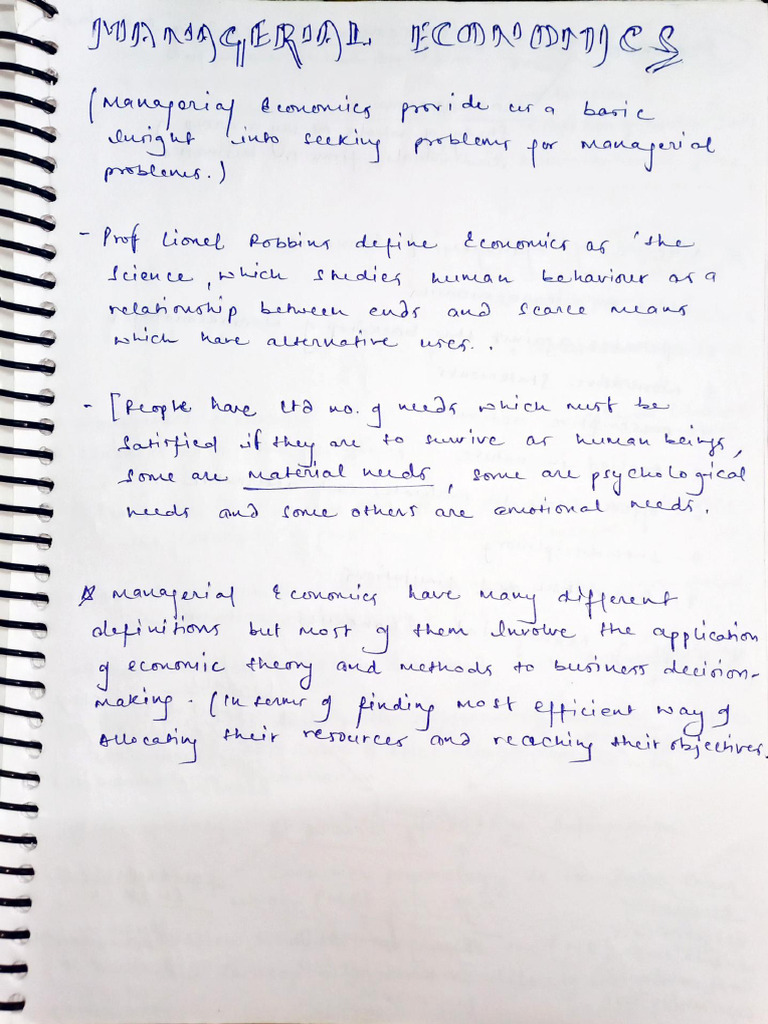 MANAGERIAL ECONOMICS
(Managerial Economics provide us a basic
Insight into seeking problems for Managerial
problems.)
- Prof Lionel Robbins define Economics as 'the
Science, which studies human behaviour as a
relationship between ends and scarce means
which have alternative uses..
- [People have Ltd no. of needs which must be
satisfied if they are to survive as human beings,
some are material needs, some are psychological
needs and some others are emotional needs.
Managerial Economics have many different
definitions but most of them Involve the application
of economic theory and methods to business decision-
making. (In terms of finding most efficient way of
Allocating their resources and reaching their objectives.